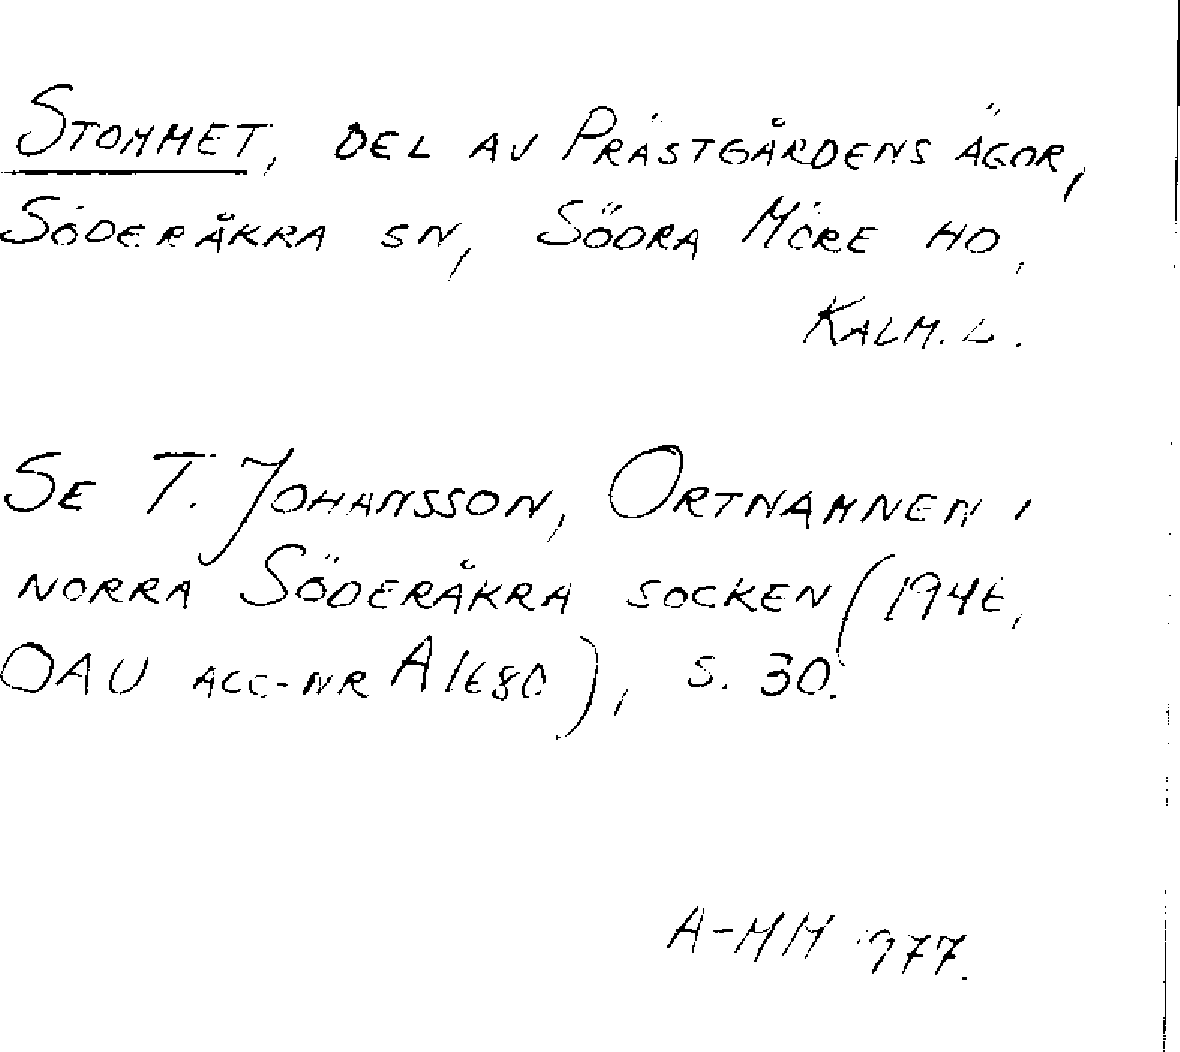 Stommet, del av Prästgårdens ägor,
Söderåkra sn, Södra Möre hd,
Kalm. l.
Se T. Johansson, Ortnamnen i
norra Söderåkra socken (1946,
OAU acc-nr A1680), s. 30.
A-MM 1977.